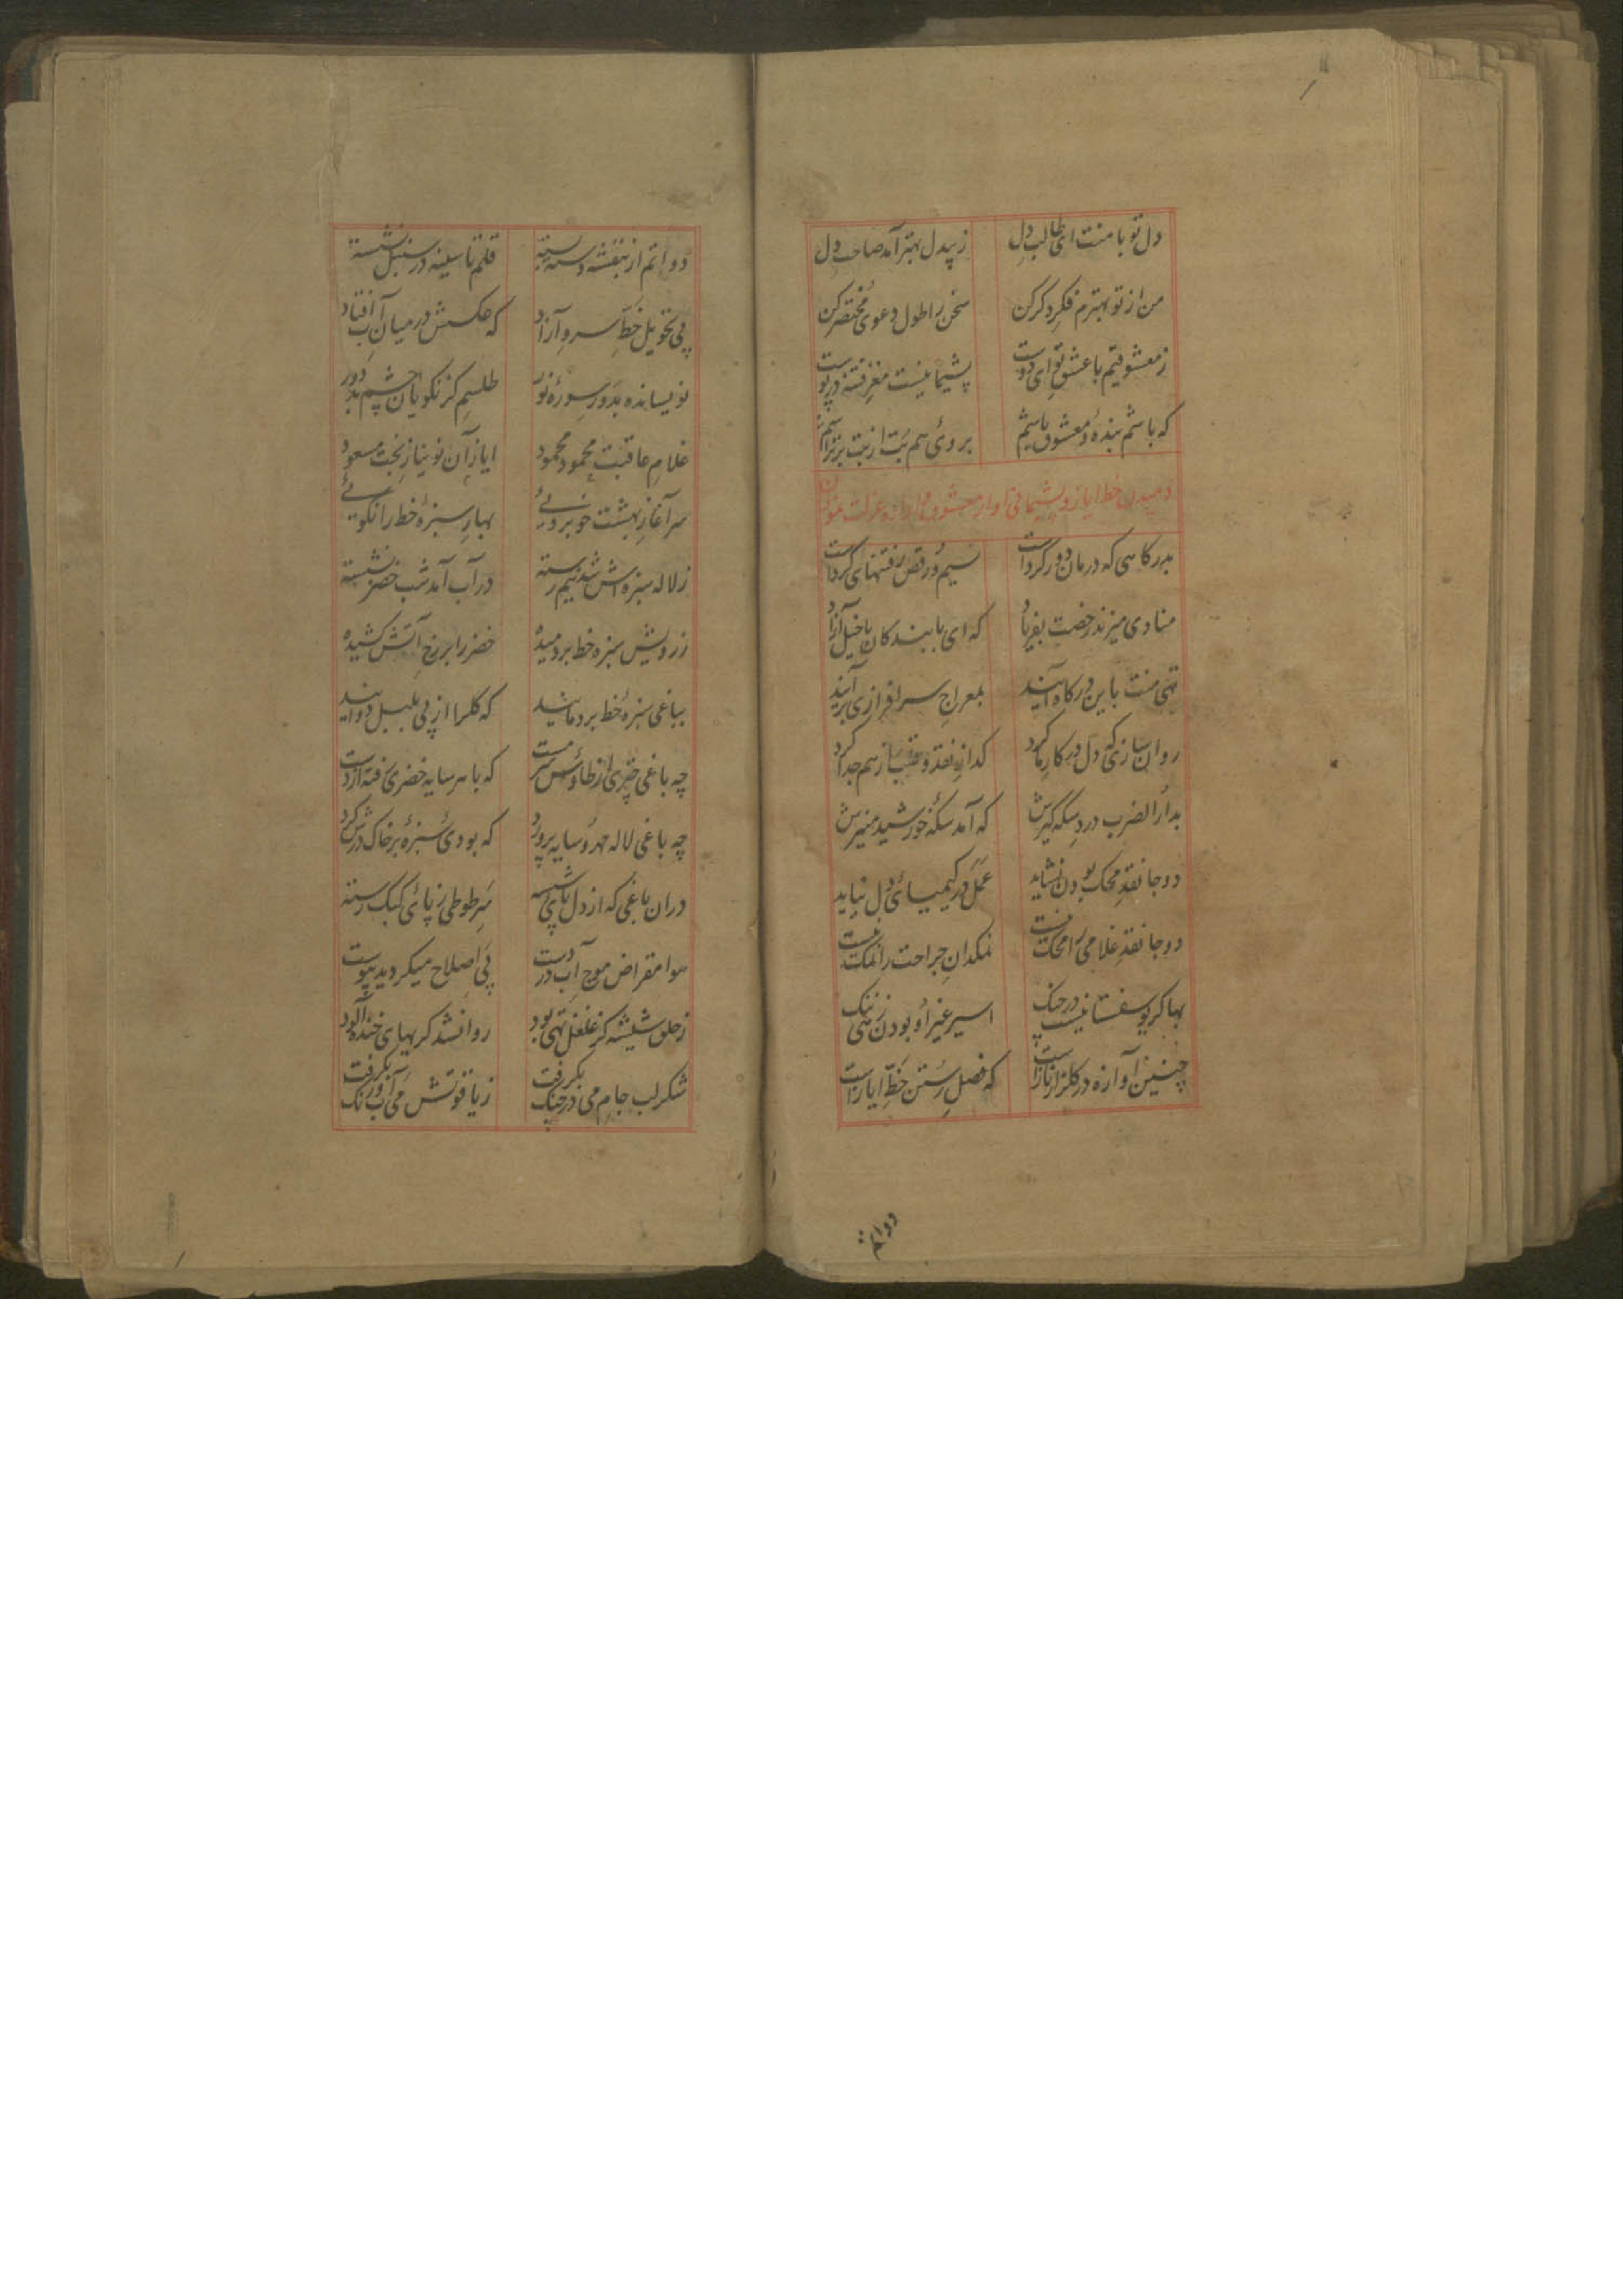 دل تو با منست ای طالب دل زبیدل بهتر آمد صاحب دل
من از تو بهترم فکر دکر کن سخن را طول دعوی مختصر کن
ز معشوقیم با عشق تو ای دوست پشیمانیست مغز فتنه در پوست
که باشم بنده و معشوق باشم بروی هم بت از بت بر تراشم
دمیدن خط ایاز و پشیمانی او از معشوقی
بدرکاهی که درمان دور کرداست نسیم و رقص رفتنهای کرداست
منادی میزند رخصت بفریاد که ای با بندکان با خیل آزاد
تهی منت باین درکاه آیند بمعراج سرافرازی برآیند
روان سازی که دل در کار ما کرد کدایه نقد و قلب از هم جدا کرد
بدار الضرب درد سکه کیرش که آمد سکه خورشید منیرش
دو جا نقد محک بودن نشاید عمل در کیمیای دل نباید
دو جا نقد غلامی را محک نیست نمکدان جراحت را نمک نیست
بها کر یوسفستانیست در چنک اسیر غیر او بودن زهی ننک
چنین آوازه در کلزار ناز است که فصل رستن خط ایاز است
دواتم
دواتم از بنفشه دسته بسته قلم تا سینه در سنبل نشسته
پی تحویل خط سرو آزاد که عکسش در میان آب افتاد
نویسانده بدور سوره نور طلسم کز نکویان چشم بد دور
غلام عاقبت محمود محمود ایاز آن نو نیاز بخت مسعود
سرآغاز بهشت خوبرویی بهار سبزه خط را نکویی
ز لاله سبزه اش شد نیم رسته در آب آمد شب خضر نشسته
ز رویش سبزه خط بردمیده خضر را بر رخ آتش کشیده
بباغی سبزه خط بردمانید که کلرا از پی بلبل دوانید
چه باغی چتری از طاوس سرمست که با هر سایه خضری رفته از دست
چه باغی لاله مهر و سایه پرورد که بودی سبزه بر خاک درش کرد
دران باغی که از دل پای شسته سر طوطی ز پای کبک رسته
هوا مقراض موج آب در دست پی اصلاح میکردید پیوست
ز حلق شیشه کز غلغل تهی بود روان شد کریهای خنده آلود
شکر لب جام می در چنک بکرفت ز یاقوتش می آب و رنک بکرفت